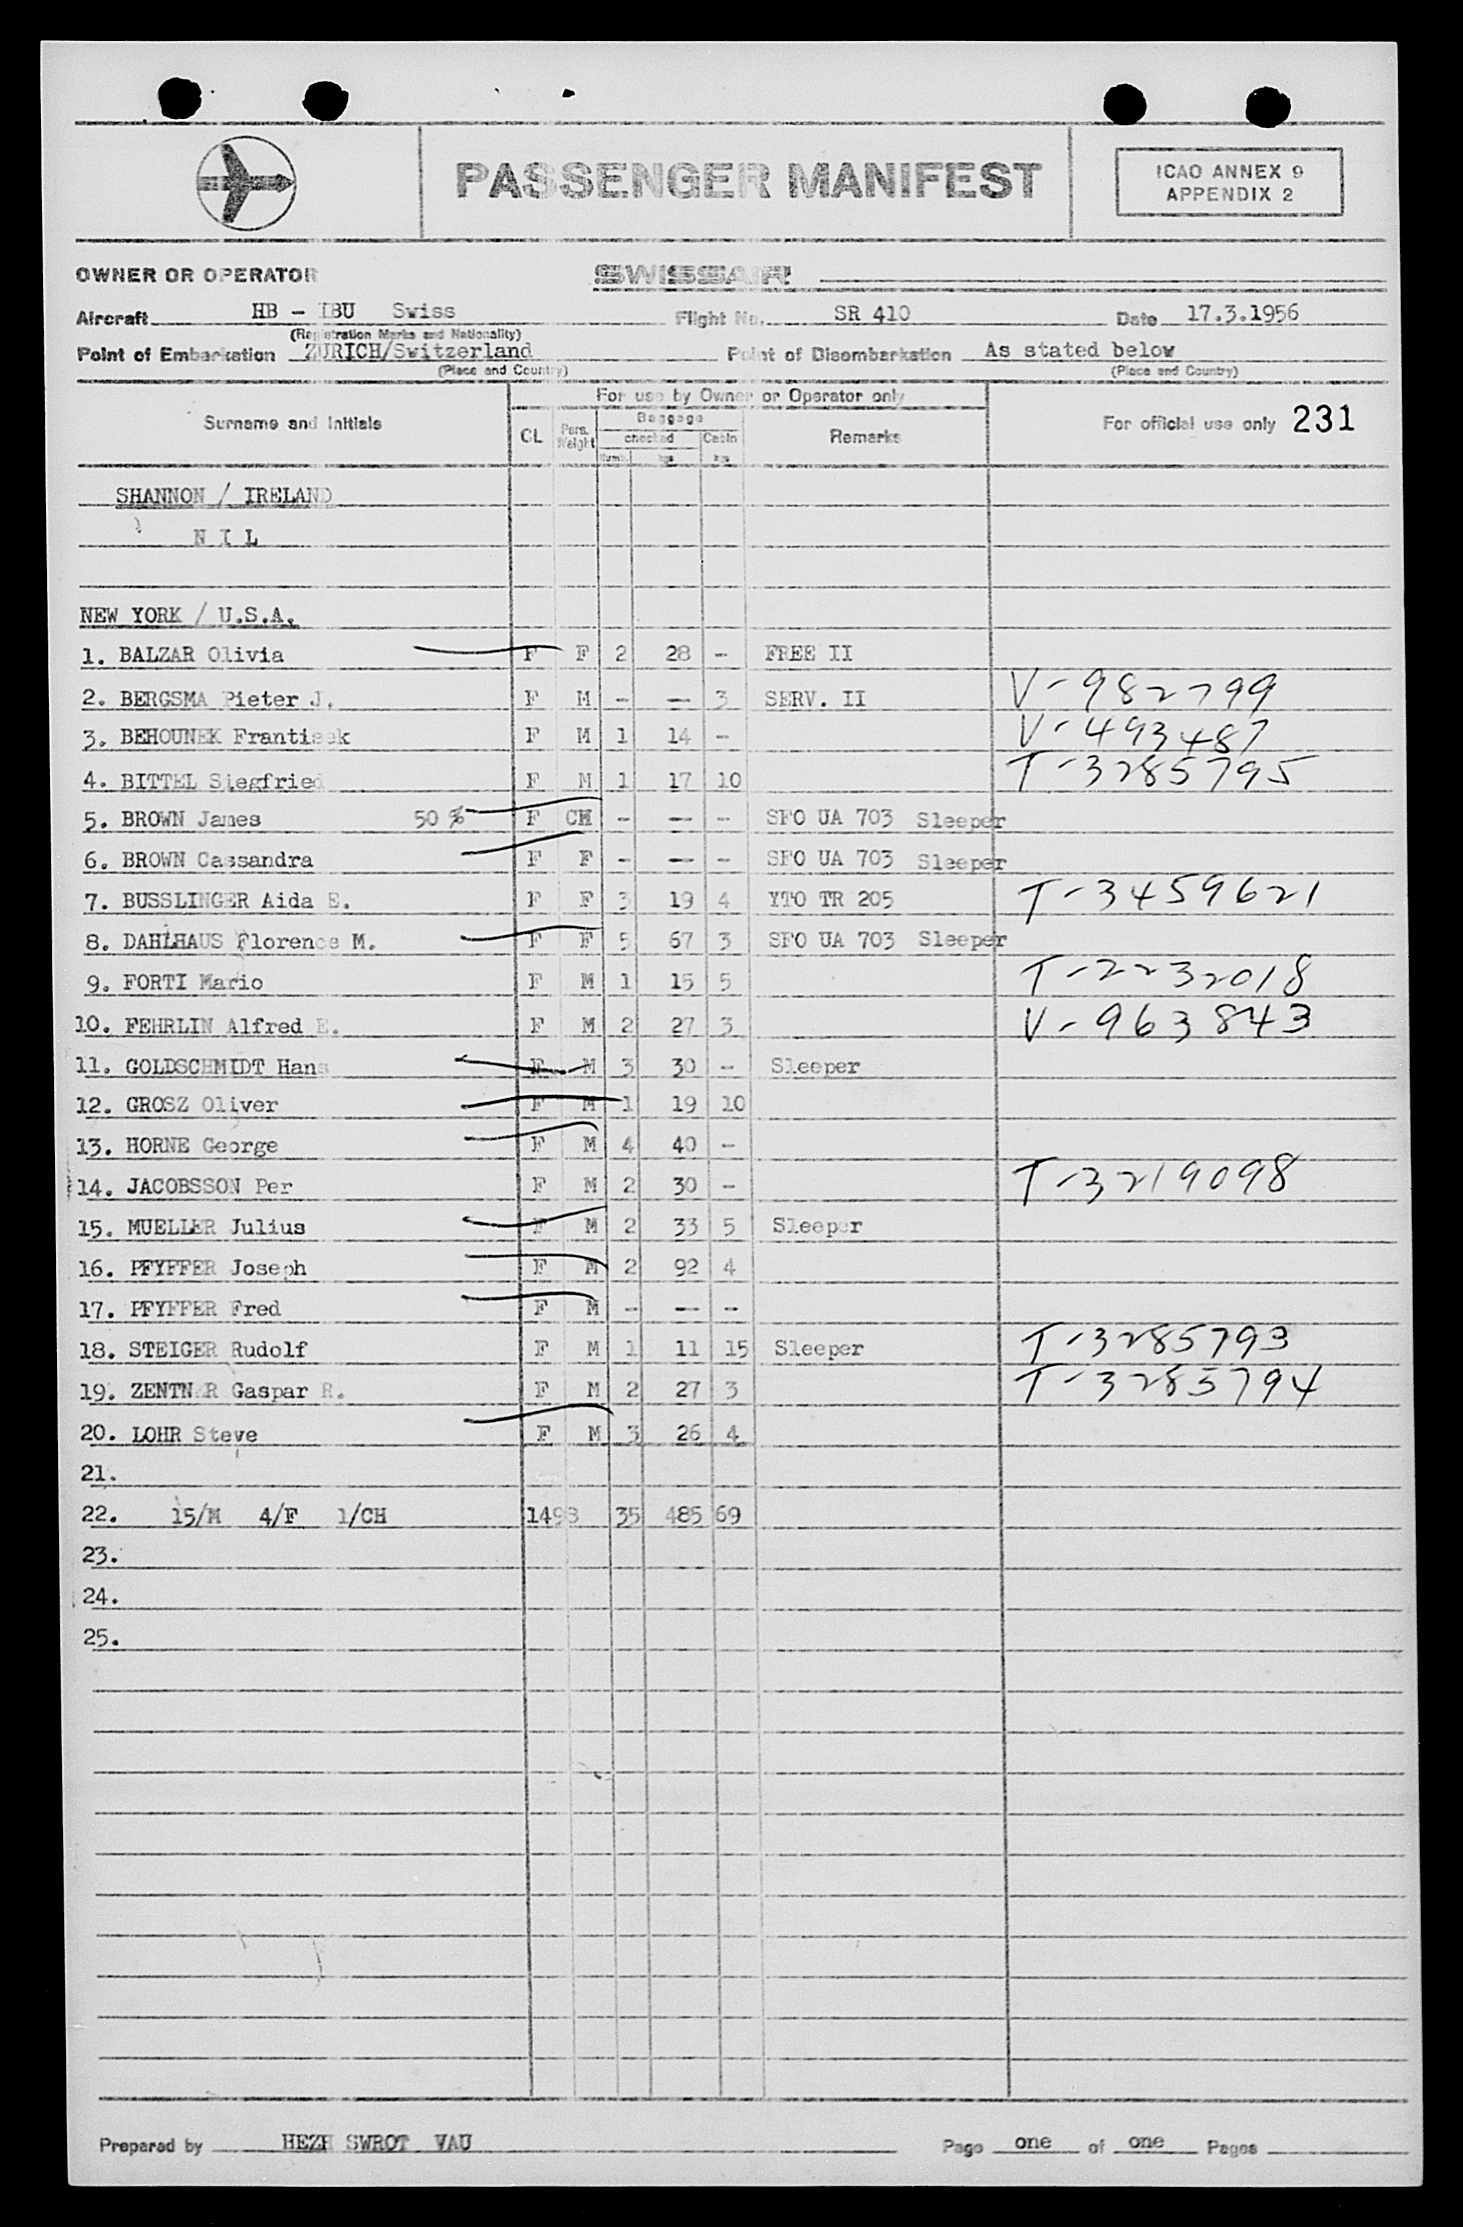 PASSENGER MANIFEST
ICAO ANNEX 9
APPENDIX 2
OWNER OR OPERATOR SWISSAIR
Aircraft HB - IBU Swiss Flight No. SR 410 Date 17.3.1956
(Registration Marks and Nationality)
Point of Embarkation ZURICH/Switzerland Point of Disembarkation As stated below
(Place and Country) (Place and Country)
For use by Owner or Operator only
Surname and Initials CL Pers. Weight Baggage checked Cabin Remarks For official use only 231
Numb. kgs kgs
SHANNON / IRELAND
N I L
NEW YORK / U.S.A.
1. BALZAR Olivia F F 2 28 - FREE II
2. BERGSMA Pieter J. F M - — 3 SERV. II V-982799
3. BEHOUNEK Frantisek F M 1 14 - V-493487
4. BITTEL Siegfried F M 1 17 10 T-3285795
5. BROWN James 50 % F CH - — - SFO UA 703 Sleeper
6. BROWN Cassandra F F - — - SFO UA 703 Sleeper
7. BUSSLINGER Aida E. F F 3 19 4 YTO TR 205 T-3459621
8. DAHLHAUS Florence M. F F 5 67 3 SFO UA 703 Sleeper
9. FORTI Mario F M 1 15 5 T-2232018
10. FEHRLIN Alfred E. F M 2 27 3 V-963843
11. GOLDSCHMIDT Hans F M 3 30 - Sleeper
12. GROSZ Oliver F M 1 19 10
13. HORNE George F M 4 40 -
14. JACOBSSON Per F M 2 30 - T-3219098
15. MUELLER Julius F M 2 33 5 Sleeper
16. PFYFFER Joseph F M 2 92 4
17. PFYFFER Fred F M - — -
18. STEIGER Rudolf F M 1 11 15 Sleeper T-3285793
19. ZENTNER Gaspar R. F M 2 27 3 T-3285794
20. LOHR Steve F M 3 26 4
21.
22. 15/M 4/F 1/CH 1498 35 485 69
23.
24.
25.
Prepared by HEZH SWROT VAU Page one of one Pages